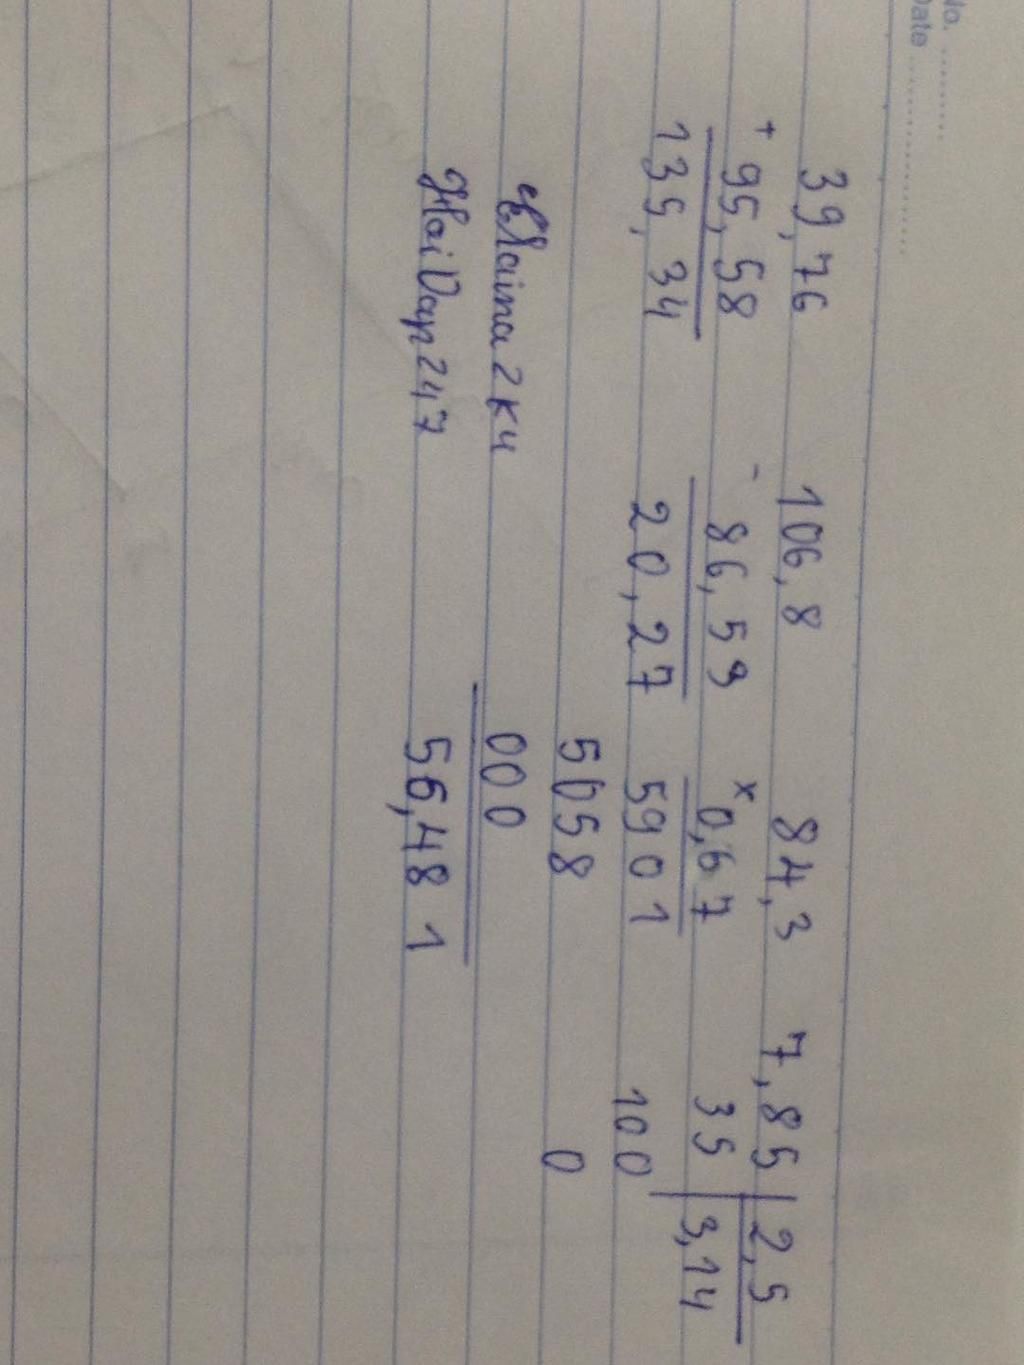 No. ............
Date ........................
39,76 106,8 84,3 7,85 2,5
+ 95,58 - 86,59 x 0,67 35 3,14
135,34 20,27 5901 100
5058 0
Elaina2k4 000
HoiDap247 56,481